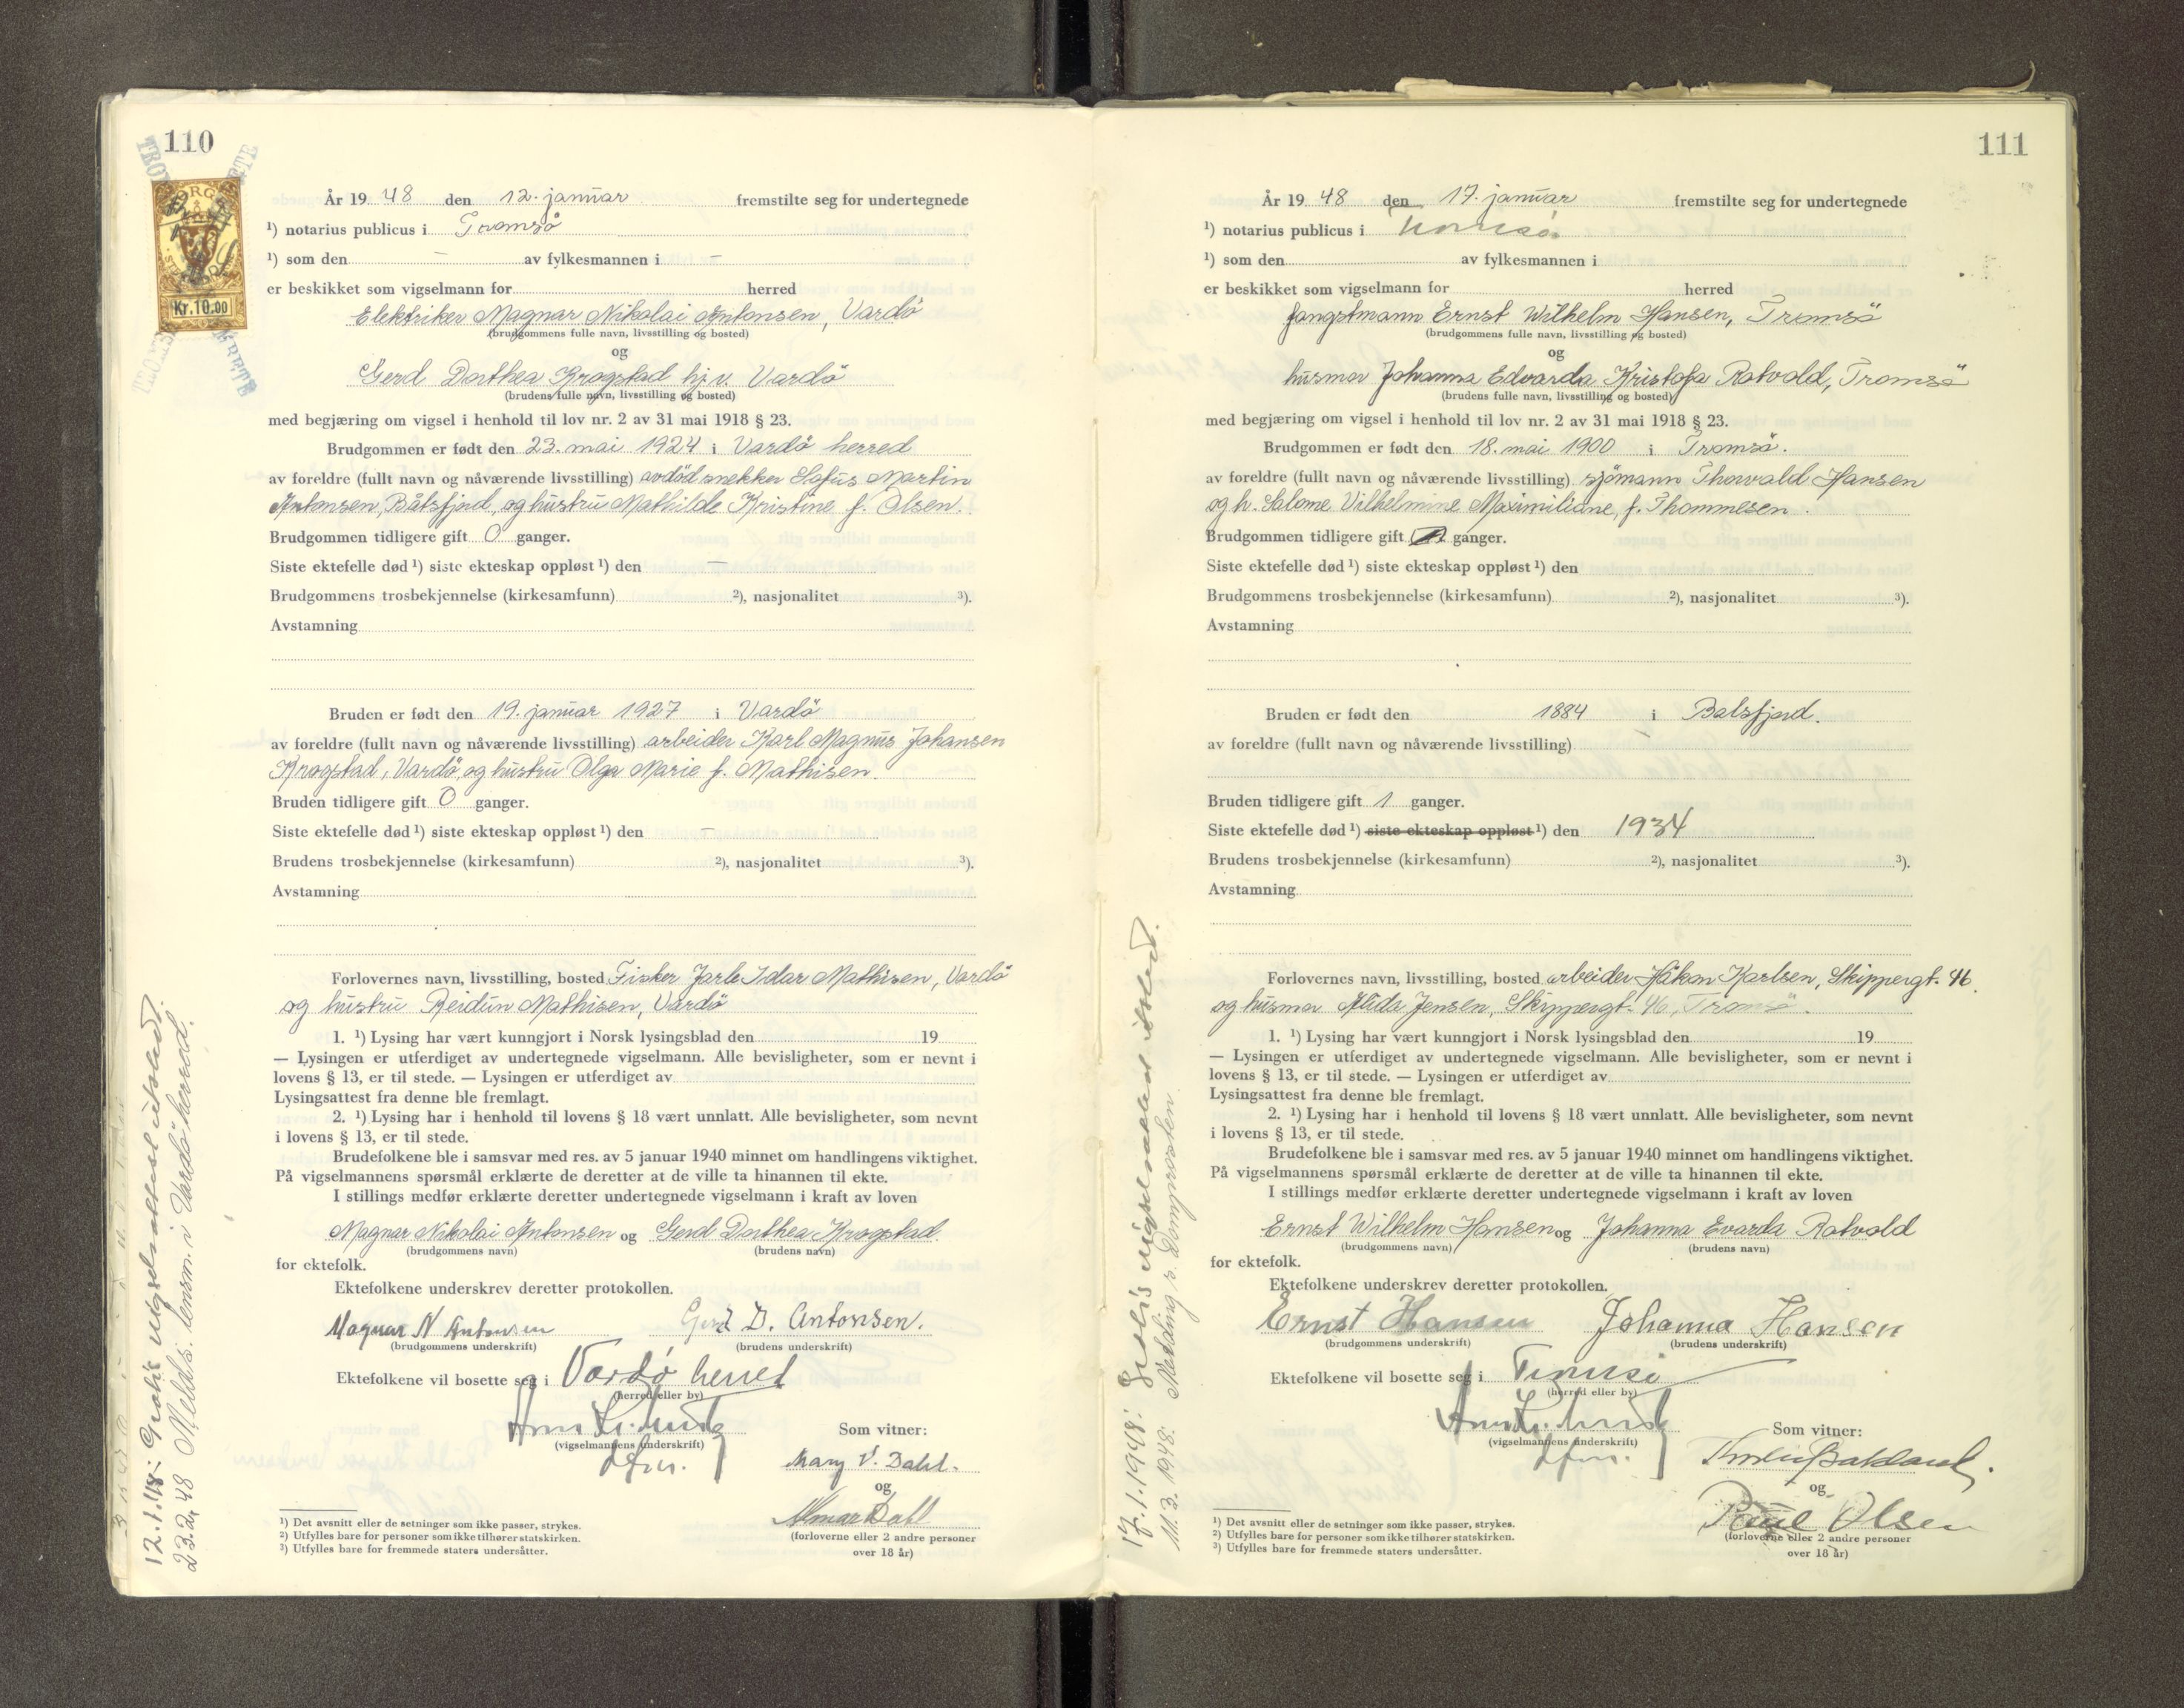 110
NORGE
Kr. 10.00
År 19 48 den 12. januar fremstilte seg for undertegnede
¹) notarius publicus i Tromsö
¹) som den – av fylkesmannen i –
er beskikket som vigselmann for herred
Elektriker Magnar Nikolai Antonsen, Vardö
(brudgommens fulle navn, livsstilling og bosted)
og
Gerd Dorthea Krogstad hj.v. Vardö
(brudens fulle navn, livsstilling og bosted)
med begjæring om vigsel i henhold til lov nr. 2 av 31 mai 1918 § 23.
Brudgommen er født den 23. mai 1924 i Vardö herred
av foreldre (fullt navn og nåværende livsstilling) avdöd snekker Sofus Martin
Antonsen, Båtsfjord, og hustru Mathilde Kristine f. Olsen.
Brudgommen tidligere gift 0 ganger.
Siste ektefelle død ¹) siste ekteskap oppløst ¹) den –
Brudgommens trosbekjennelse (kirkesamfunn) ²), nasjonalitet ³).
Avstamning
Bruden er født den 19. januar 1927 i Vardö
av foreldre (fullt navn og nåværende livsstilling) arbeider Karl Magnus Johansen
Krogstad, Vardö, og hustru Olga Marie f. Mathisen.
Bruden tidligere gift 0 ganger.
Siste ektefelle død ¹) siste ekteskap oppløst ¹) den –
Brudens trosbekjennelse (kirkesamfunn) ²), nasjonalitet ³).
Avstamning
Forlovernes navn, livsstilling, bosted Fisker Jarle Idar Mathisen, Vardö
og hustru Reidun Mathisen, Vardö
1. ¹) Lysing har vært kunngjort i Norsk lysingsblad den 19
— Lysingen er utferdiget av undertegnede vigselmann. Alle bevisligheter, som er nevnt i
lovens § 13, er til stede. — Lysingen er utferdiget av
Lysingsattest fra denne ble fremlagt.
2. ¹) Lysing har i henhold til lovens § 18 vært unnlatt. Alle bevisligheter, som nevnt
i lovens § 13, er til stede.
Brudefolkene ble i samsvar med res. av 5 januar 1940 minnet om handlingens viktighet.
På vigselmannens spørsmål erklærte de deretter at de ville ta hinannen til ekte.
I stillings medfør erklærte deretter undertegnede vigselmann i kraft av loven
Magnar Nikolai Antonsen og Gerd Dorthea Krogstad
(brudgommens navn) (brudens navn)
for ektefolk.
Ektefolkene underskrev deretter protokollen.
Magnar N Antonsen Gerd D. Antonsen.
(brudgommens underskrift) (brudens underskrift)
Ektefolkene vil bosette seg i Vardø herred
(herred eller by)
(vigselmannens underskrift)
Som vitner:
Mary V. Dahl.
og
Dahl
(forloverne eller 2 andre personer
over 18 år)
¹) Det avsnitt eller de setninger som ikke passer, strykes.
²) Utfylles bare for personer som ikke tilhører statskirken.
³) Utfylles bare for fremmede staters undersåtter.
12.1.48: Gratis vigselsattest utsted.
23.2.48 Meldt lensm. i Vardö herred.
111
År 19 48 den 17. januar fremstilte seg for undertegnede
¹) notarius publicus i Tromsö
¹) som den av fylkesmannen i
er beskikket som vigselmann for herred
fangstmann Ernst Wilhelm Hansen, Tromsö
(brudgommens fulle navn, livsstilling og bosted)
og
husmor Johanna Edvarda Kristofa Rotvold, Tromsö
(brudens fulle navn, livsstilling og bosted)
med begjæring om vigsel i henhold til lov nr. 2 av 31 mai 1918 § 23.
Brudgommen er født den 18. mai 1900 i Tromsö.
av foreldre (fullt navn og nåværende livsstilling) sjömann Thorvald Hansen
og h. Salome Vilhelmine Maximiliane, f. Thommesen.
Brudgommen tidligere gift ganger.
Siste ektefelle død ¹) siste ekteskap oppløst ¹) den
Brudgommens trosbekjennelse (kirkesamfunn) ²), nasjonalitet ³).
Avstamning
Bruden er født den 1884 i Balsfjord.
av foreldre (fullt navn og nåværende livsstilling)
Bruden tidligere gift 1 ganger.
Siste ektefelle død ¹) siste ekteskap oppløst ¹) den 1934
Brudens trosbekjennelse (kirkesamfunn) ²), nasjonalitet ³).
Avstamning
Forlovernes navn, livsstilling, bosted arbeider Håkon Karlsen, Skippergt. 46.
og husmor Alida Jensen, Skippergt. 46, Tromsö.
1. ¹) Lysing har vært kunngjort i Norsk lysingsblad den 19
— Lysingen er utferdiget av undertegnede vigselmann. Alle bevisligheter, som er nevnt i
lovens § 13, er til stede. — Lysingen er utferdiget av
Lysingsattest fra denne ble fremlagt.
2. ¹) Lysing har i henhold til lovens § 18 vært unnlatt. Alle bevisligheter, som nevnt
i lovens § 13, er til stede.
Brudefolkene ble i samsvar med res. av 5 januar 1940 minnet om handlingens viktighet.
På vigselmannens spørsmål erklærte de deretter at de ville ta hinannen til ekte.
I stillings medfør erklærte deretter undertegnede vigselmann i kraft av loven
Ernst Wilhelm Hansen og Johanna Evarda Rotvold
(brudgommens navn) (brudens navn)
for ektefolk.
Ektefolkene underskrev deretter protokollen.
Ernst Hansen Johanna Hansen
(brudgommens underskrift) (brudens underskrift)
Ektefolkene vil bosette seg i Tromsø
(herred eller by)
(vigselmannens underskrift)
Som vitner:
og
Paul Olsen
(forloverne eller 2 andre personer
over 18 år)
¹) Det avsnitt eller de setninger som ikke passer, strykes.
²) Utfylles bare for personer som ikke tilhører statskirken.
³) Utfylles bare for fremmede staters undersåtter.
17.1.1948: Gratis vigselsattest utsted.
11.3.1948: Melding s. Domprosten